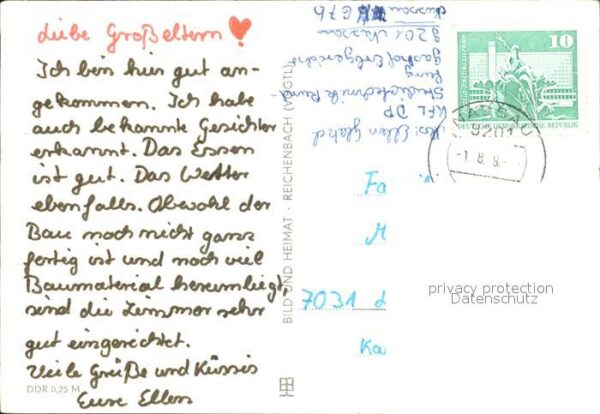 Liebe Großeltern!
Ich bin hier gut an-
gekommen. Ich habe
auch bekannte Gesichter
erkannt. Das Essen
ist gut. Das Wetter
ebenfalls. Obwohl der
Bau noch nicht ganz
fertig ist und noch viel
Baumaterial herumliegt,
sind die Zimmer sehr
gut eingerichtet.
Viele Grüße und Küssis
Eure Ellen
DDR 0,25 M
BILD UND HEIMAT · REICHENBACH (VOGTL)
Ellen
KFL DP
Studiotechnik Rund-
funk
Gasthof Erbgericht
9201 Nassau
10
DEUTSCHE DEMOKRATISCHE REPUBLIK
9201
-1. 8. 9.-
Fa
M
7031
Ka
privacy protection
Datenschutz